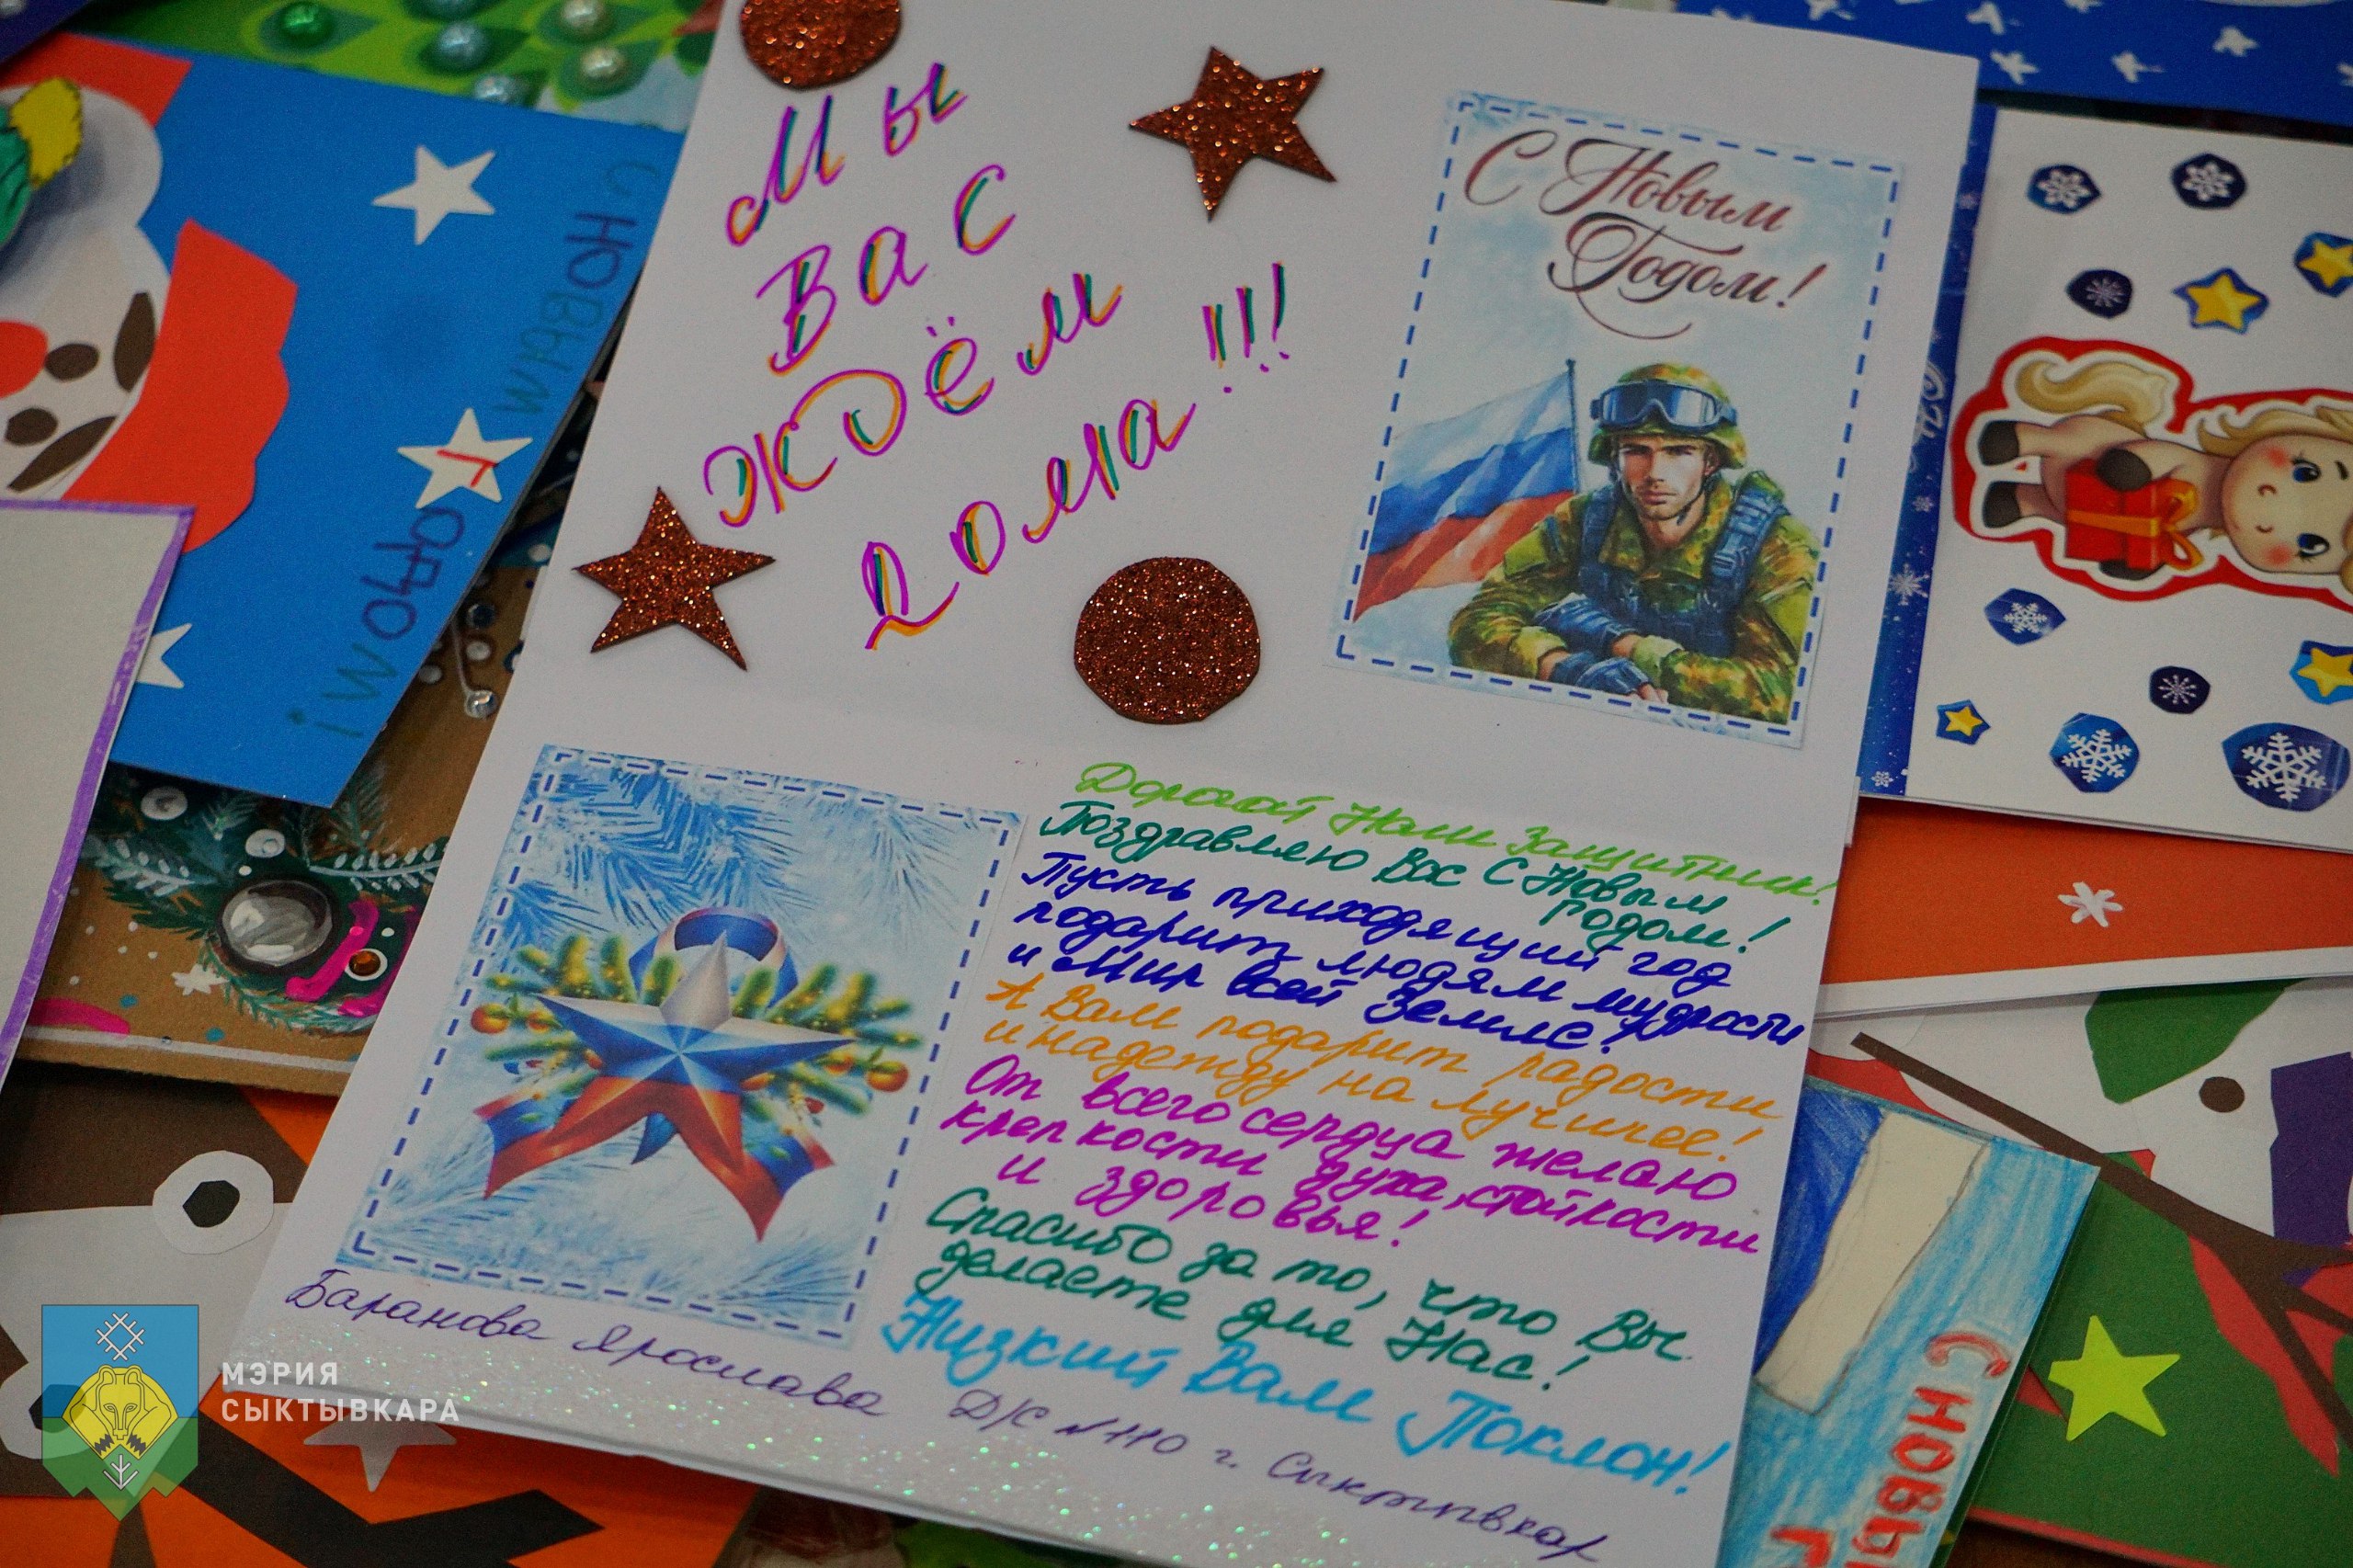 Мы
Вас
Ждём
дома!!!
С Новым
Годом!
Дорогой Наш Защитник!
Поздравляю Вас С Новым
годом!
Пусть приходящий год
подарит людям мудрости
и Мир всей Земле!
А Вам подарит радости
и надежду на лучшее!
От всего сердца желаю
крепкости духа, стойкости
и здоровья!
Спасибо за то, что Вы
делаете для Нас!
Низкий Вам Поклон!
Баранова Ярослава Д/С №110 г. Сыктывкар
С НОВЫМ
ГОДОМ!
С НОВЫ
Г
МЭРИЯ
СЫКТЫВКАРА